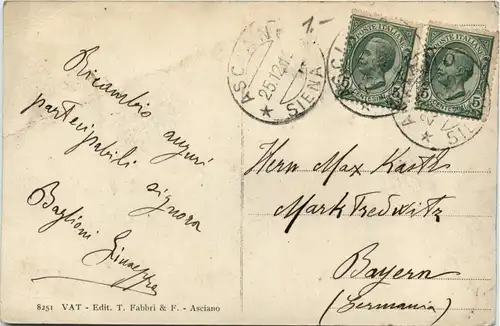 Ricambio auguri
partecipabili signora
Baglioni Giuseppa
8251 VAT - Edit. T. Fabbri & F. - Asciano
ASCIANO
25.12.
SIENA
1.-
POSTE ITALIANE
5
5
POSTE ITALIANE
5
5
Herrn Max Kastl
Marktredwitz
Bayern
(Germania)